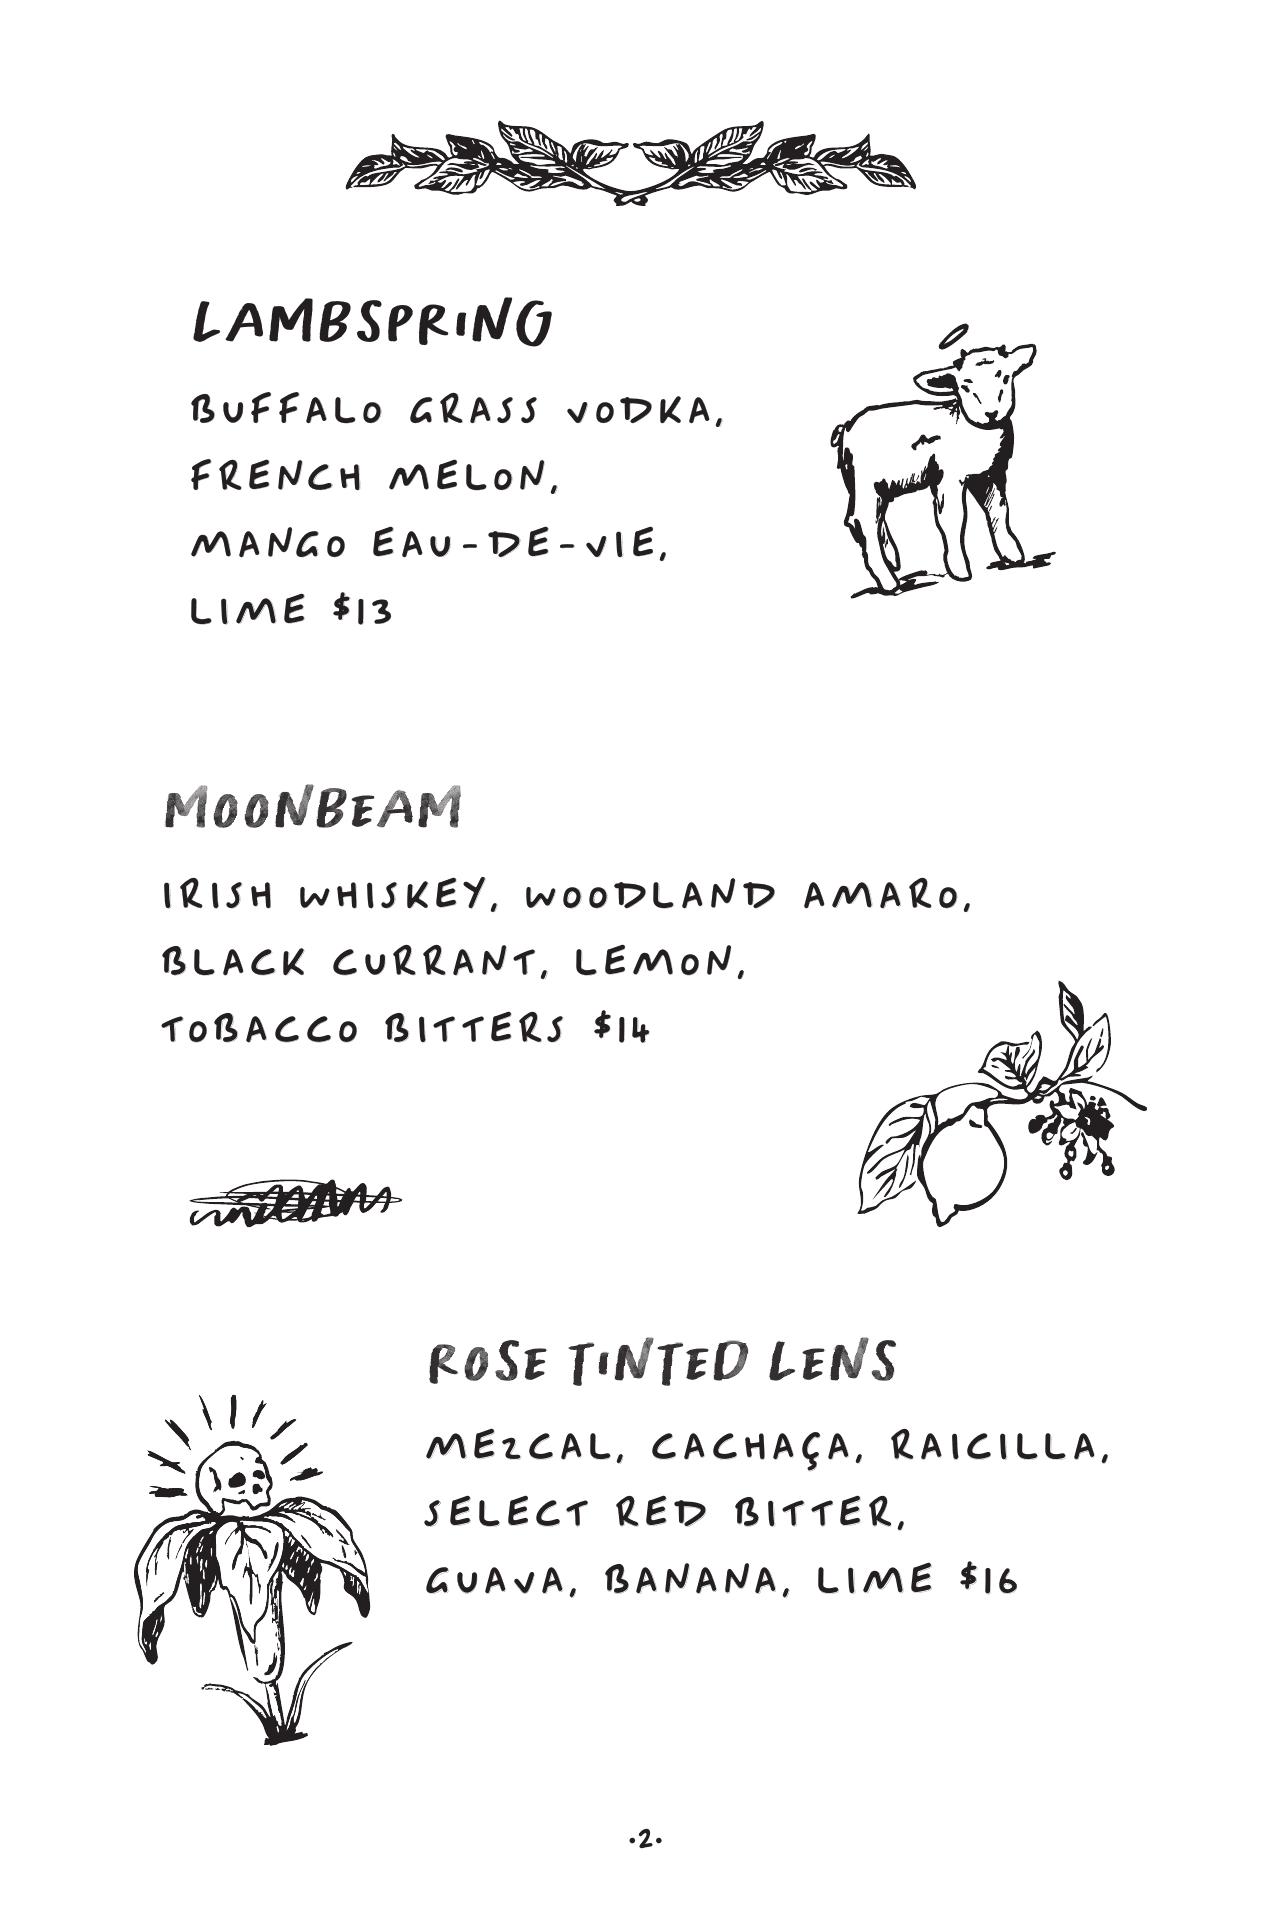 LAMBSPRING
BUFFALO GRASS VODKA,
FRENCH MELON,
MANGO EAU-DE-VIE,
LIME $13
MOONBEAM
IRISH WHISKEY, WOODLAND AMARO,
BLACK CURRANT, LEMON,
TOBACCO BITTERS $14
ROSE TINTED LENS
MEZCAL, CACHAÇA, RAICILLA,
SELECT RED BITTER,
GUAVA, BANANA, LIME $16
·2·